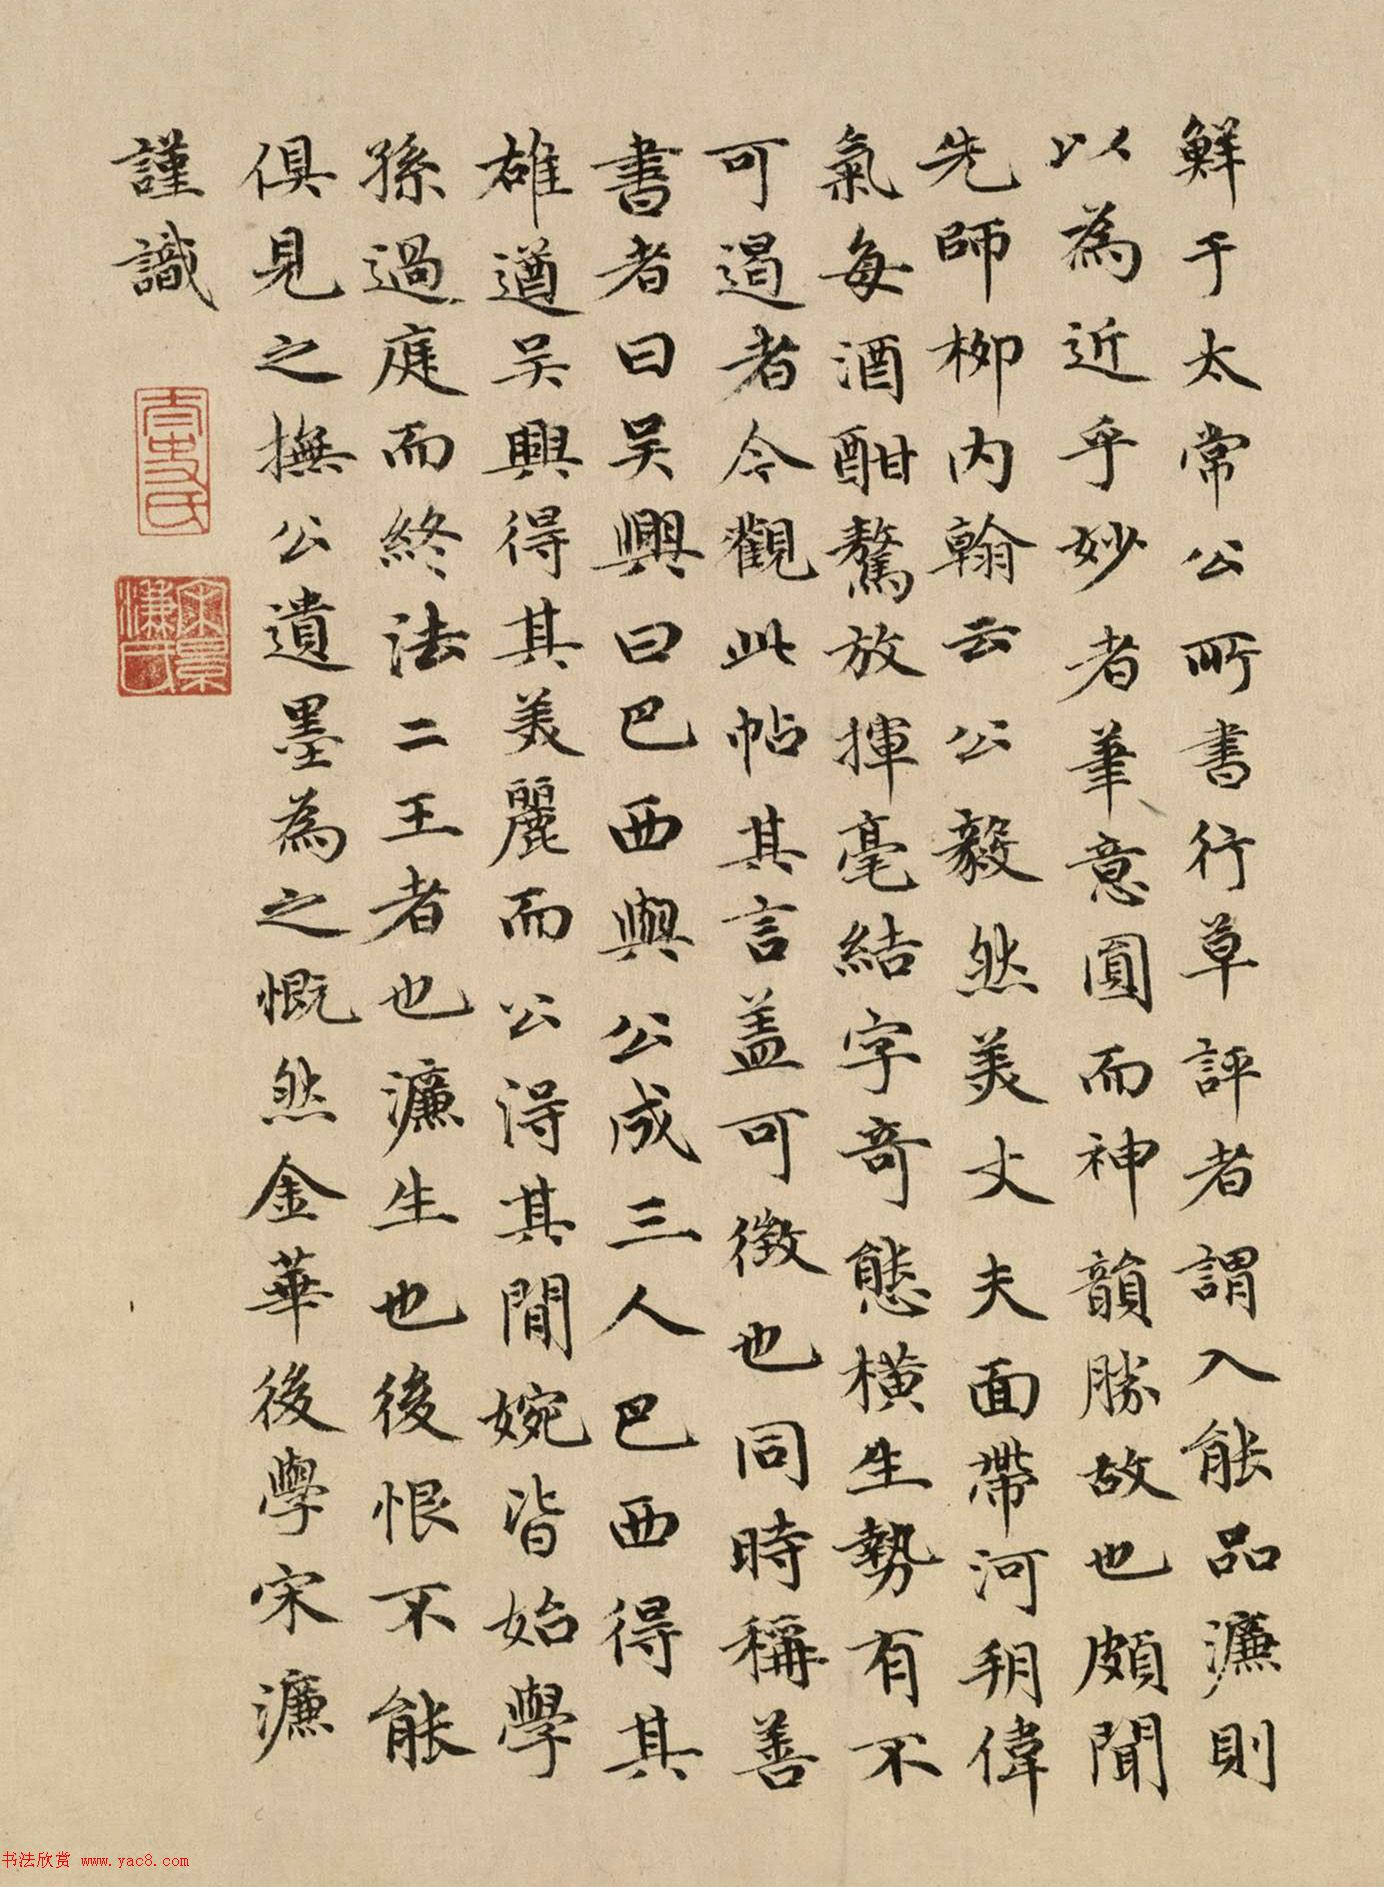 鮮于太常公所書行草評者謂入能品濂則
以為近乎妙者筆意圓而神韻勝故也頗聞
先師柳內翰云公毅然美丈夫面帶河朔偉
氣每酒酣驁放揮毫結字奇態橫生勢有不
可遏者今觀此帖其言蓋可徵也同時稱善
書者曰吳興曰巴西與公成三人巴西得其
雄遒吳興得其美麗而公得其閒婉皆始學
孫過庭而終法二王者也濂生也後恨不能
俱見之撫公遺墨為之慨然金華後學宋濂
謹識
太史氏
宋景濂氏
书法欣赏 www.yac8.com